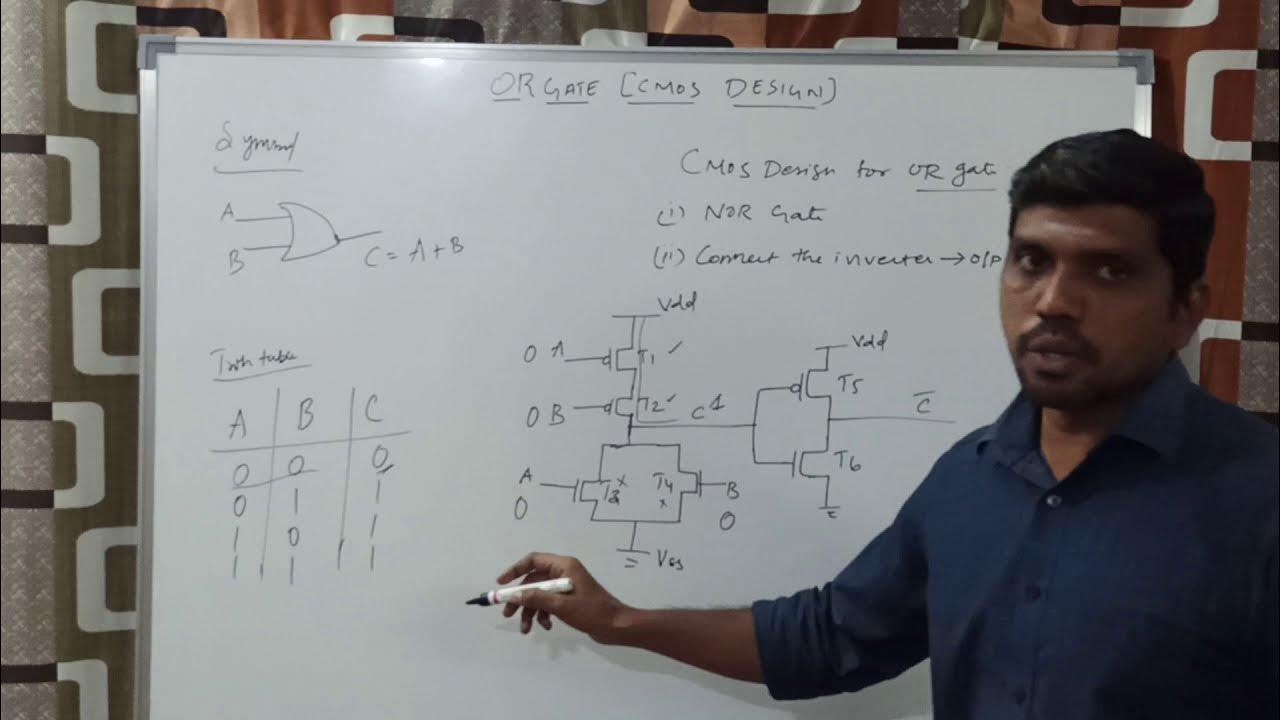 OR GATE [CMOS DESIGN]
Symbol
A
B
C = A + B
CMOS Design for OR gate
(i) NOR Gate
(ii) Connect the inverter → O/P
Vdd
0 A
T1 ✓
0 B
T2 ✓
C 1
A
0
T3 x
T4 x
B
0
Vss
Vdd
T5
T6
C̅
Truth table
A B C
0 0 0
0 1 1
1 0 1
1 1 1